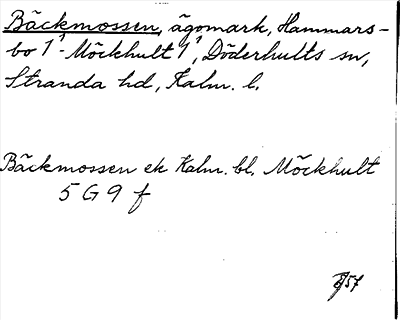 Bäckmossen, ägomark, Hammars-
bo 1¹-Möckhult 1¹, Döderhults sn,
Stranda hd, Kalm. l.
Bäckmossen ek Kalm. bl. Möckhult
5 G 9 f
57